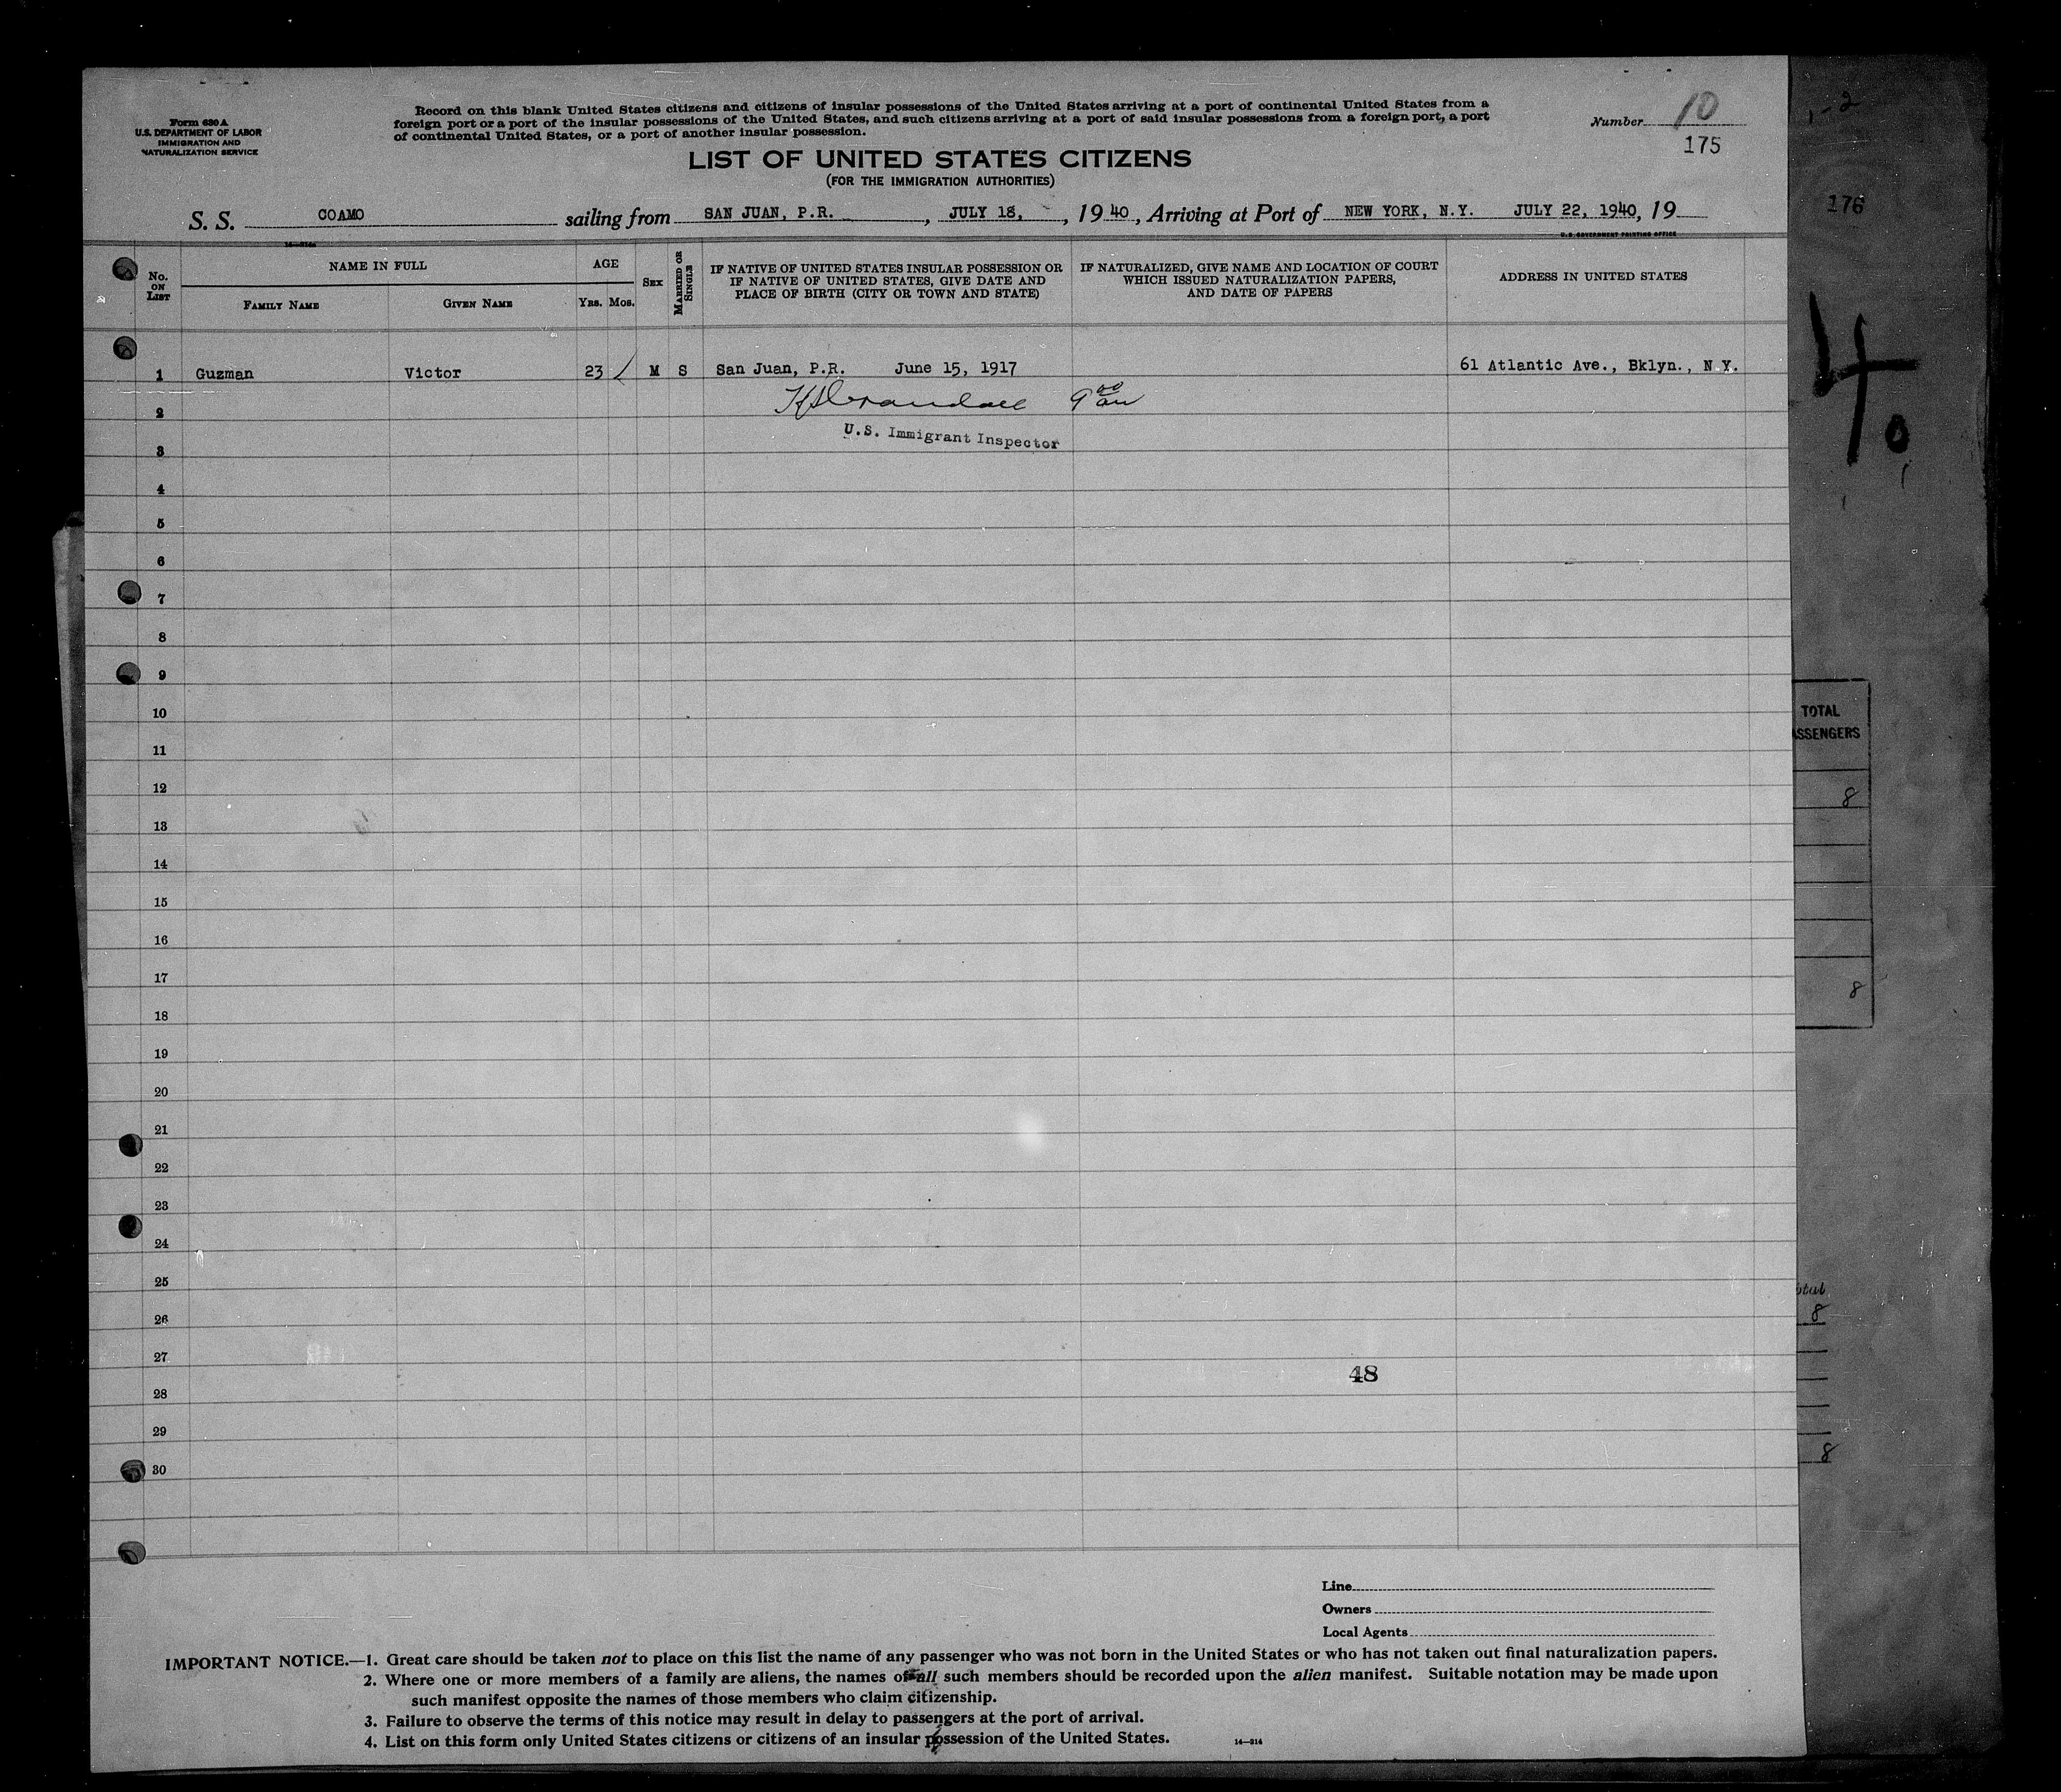 Form 630 A
U.S. DEPARTMENT OF LABOR
IMMIGRATION AND
NATURALIZATION SERVICE
Record on this blank United States citizens and citizens of insular possessions of the United States arriving at a port of continental United States from a
foreign port or a port of the insular possessions of the United States, and such citizens arriving at a port of said insular possessions from a foreign port, a port
of continental United States, or a port of another insular possession.
Number 10
175
LIST OF UNITED STATES CITIZENS
(FOR THE IMMIGRATION AUTHORITIES)
S. S. COAMO sailing from SAN JUAN, P.R. , JULY 18, , 19 40, Arriving at Port of NEW YORK, N.Y. JULY 22, 1940, 19
U.S. GOVERNMENT PRINTING OFFICE
No. ON LIST
NAME IN FULL
FAMILY NAME
GIVEN NAME
AGE
YRS. MOS.
SEX
MARRIED OR SINGLE
IF NATIVE OF UNITED STATES INSULAR POSSESSION OR
IF NATIVE OF UNITED STATES, GIVE DATE AND
PLACE OF BIRTH (CITY OR TOWN AND STATE)
IF NATURALIZED, GIVE NAME AND LOCATION OF COURT
WHICH ISSUED NATURALIZATION PAPERS,
AND DATE OF PAPERS
ADDRESS IN UNITED STATES
1 Guzman Victor 23 M S San Juan, P.R. June 15, 1917 61 Atlantic Ave., Bklyn., N.Y.
2
U.S. Immigrant Inspector
3
4
5
6
7
8
9
10
11
12
13
14
15
16
17
18
19
20
21
22
23
24
25
26
27
48
28
29
30
Line
Owners
Local Agents
IMPORTANT NOTICE.—1. Great care should be taken not to place on this list the name of any passenger who was not born in the United States or who has not taken out final naturalization papers.
2. Where one or more members of a family are aliens, the names of all such members should be recorded upon the alien manifest. Suitable notation may be made upon
such manifest opposite the names of those members who claim citizenship.
3. Failure to observe the terms of this notice may result in delay to passengers at the port of arrival.
4. List on this form only United States citizens or citizens of an insular possession of the United States.
14—314
176
TOTAL
SSENGERS
8
8
8
8